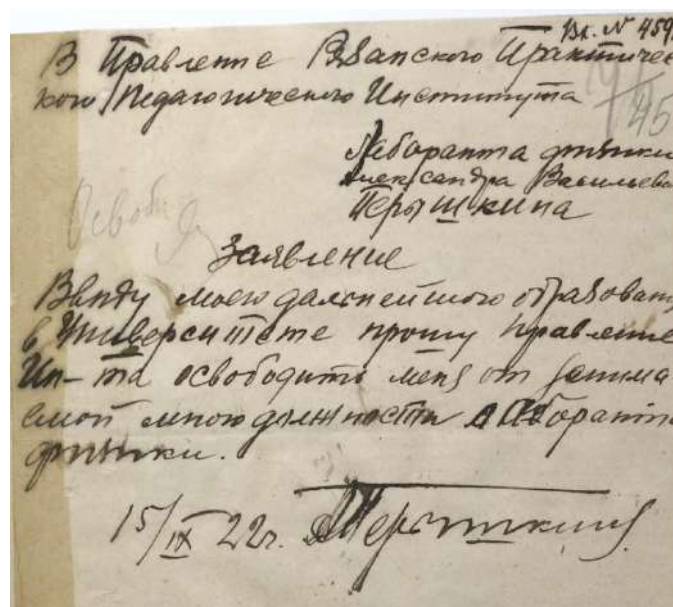 Вх. № 459
В Правление Рязанского Практичес
кого Педагогического Института
Лаборанта физики
Александра Васильеви
Пёрышкина
Освоб
Заявление
Ввиду моего дальнейшого образован
в Университете прошу Правление
Ин-та освободить меня от занима
емой мною должности лаборанта
физики.
15/IX 22г. АПерышкин